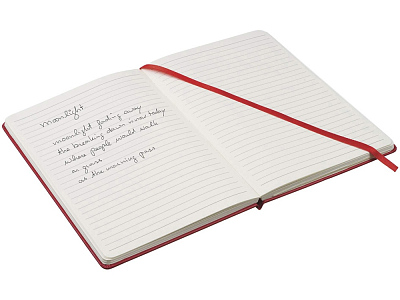 Moonlight
moonlight fading away
the breaking dawn in now today
where people would walk
on grass
as the morning pass